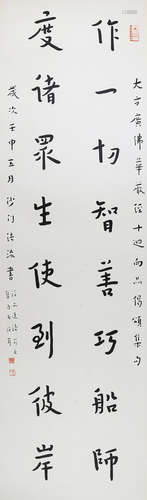 大方廣佛華嚴經十迴向品偈頌集句
作一切智善巧船師
度諸眾生使到彼岸
歲次壬申五月沙門